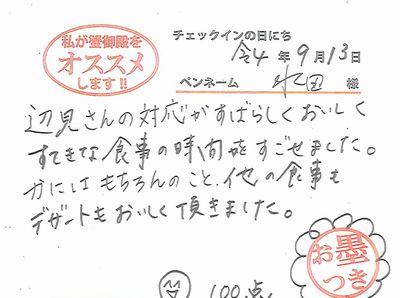 私が蟹御殿を
オススメ
します!!
チェックインの日にち
令4年9月13日
ペンネーム 様
辺見さんの対応がすばらしくおいしく
すてきな食事の時間をすごせました。
かにはもちろんのこと、他の食事も
デザートもおいしく頂きました。
100点
お墨
つき